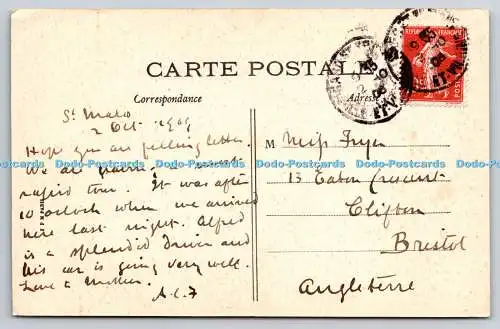 CARTE POSTALE
Correspondance
Adresse
REPUBLIQUE FRANCAISE
St Malo
2 Oct 1908
Hope you are feeling better.
We are having a most
rapid tour. It was after
10 o'clock when we arrived
here last night. Alfred
is a splendid driver and
his car is going very well.
Love a mother.
A.C.F
M Miss Fryer
13 Eaton Crescent
Clifton
Bristol
Angleterre
Dodo-Postcards Dodo-Postcards Dodo-Postcards Dodo-Postcards Dodo-Postcards